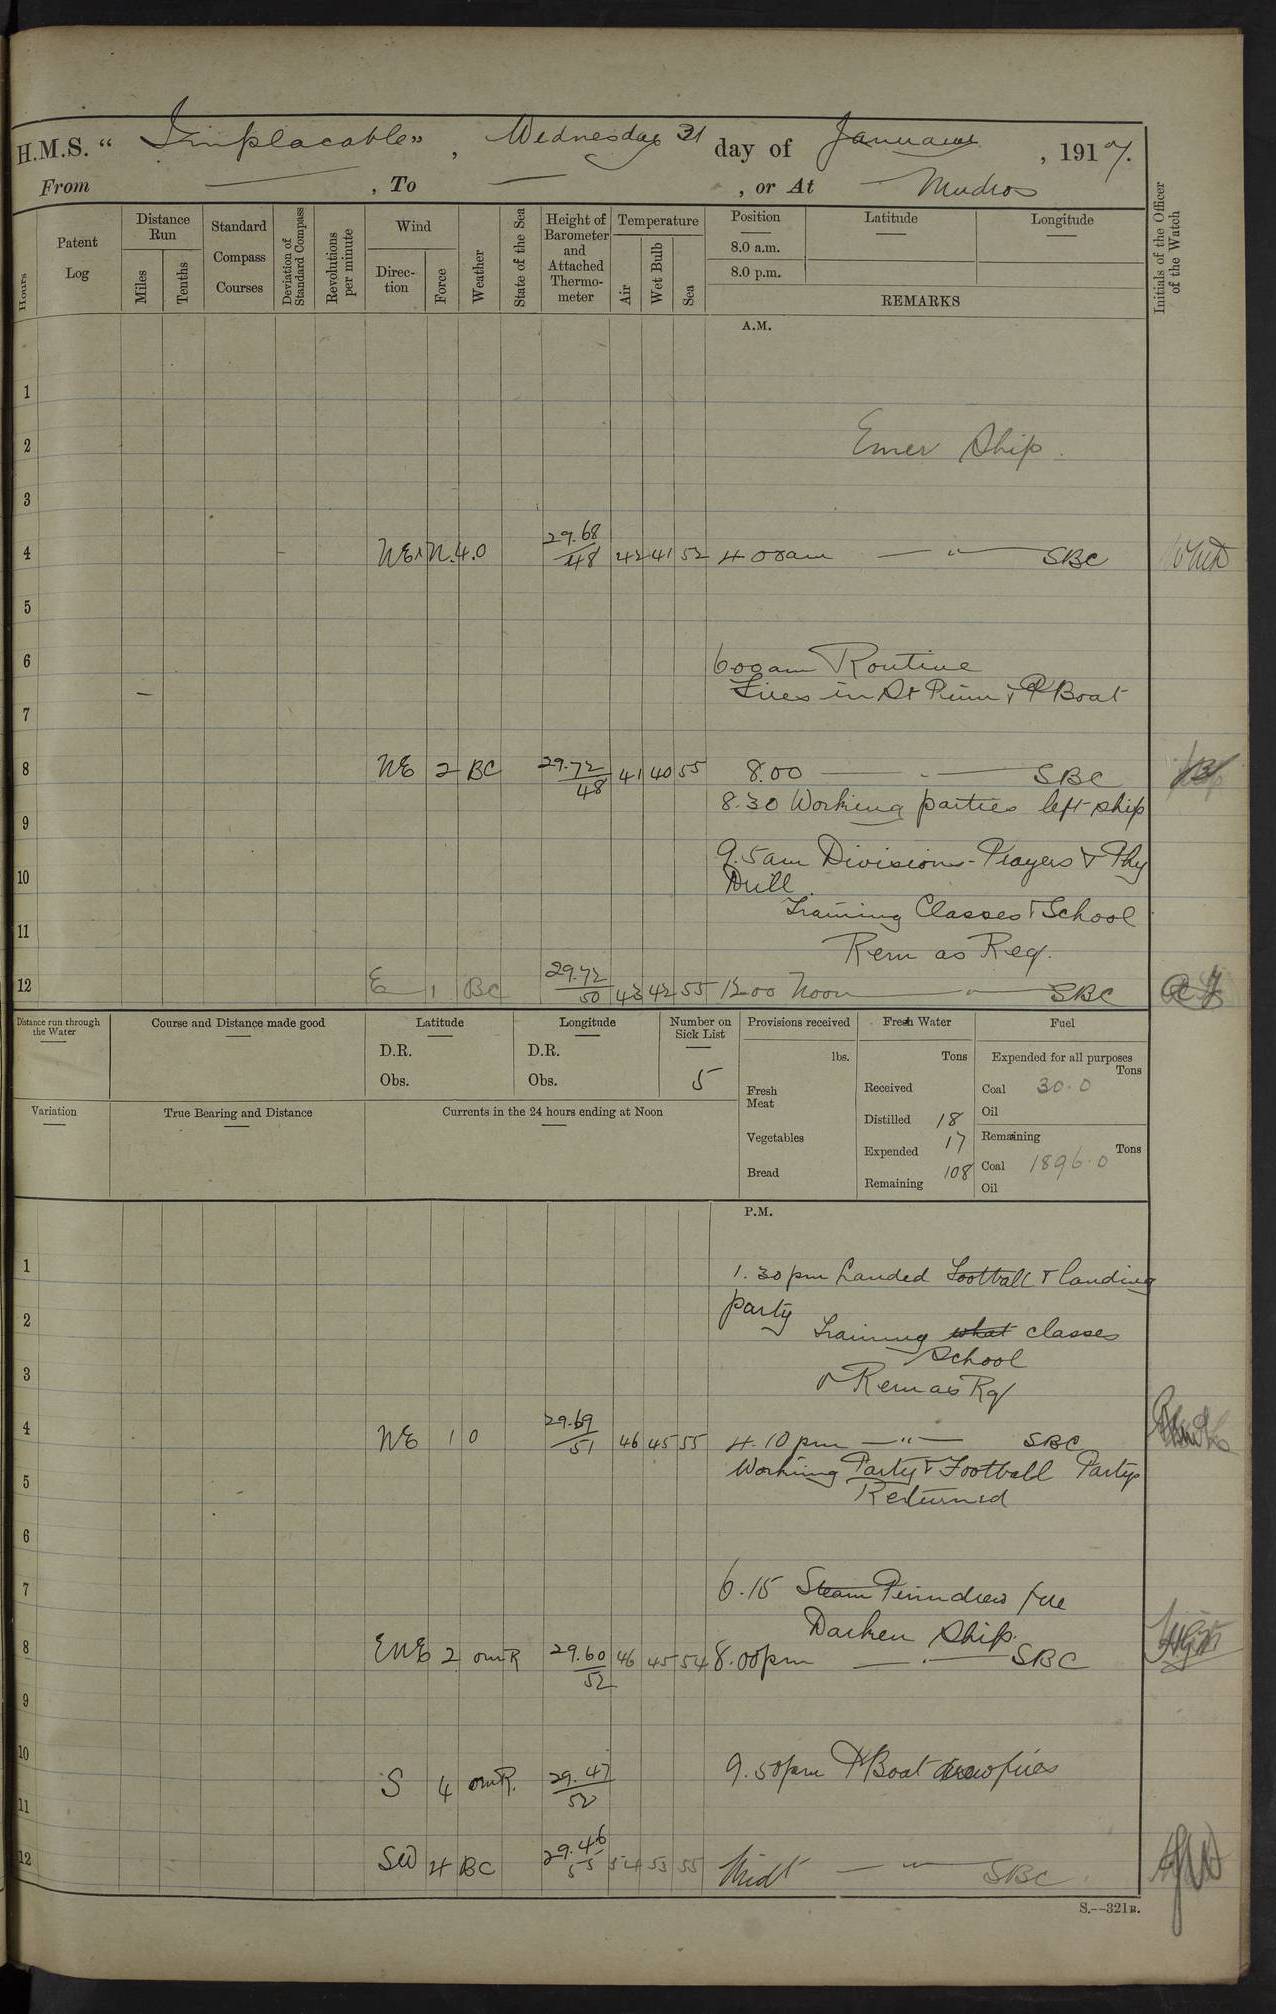 H.M.S. "Implacable", Wednesday 31 day of January, 1917.
From — , To — , or At Mudros
Hours
Patent Log
Distance Run
Miles
Tenths
Standard Compass Courses
Deviation of Standard Compass
Revolutions per minute
Wind
Direction
Force
Weather
State of the Sea
Height of Barometer and Attached Thermometer
Temperature
Air
Wet Bulb
Sea
Position
8.0 a.m.
8.0 p.m.
Latitude
Longitude
REMARKS
Initials of the Officer of the Watch
A.M.
1
2 Emer Ship.
3
4 NE×N. 4. O 29.68/48 42 41 52 4 00am — " — SBC
5
6 600am Routine
Fires in St Pinn & P Boat
7
8 NE 2 BC 29.72/48 41 40 55 8.00 — " — SBC
8.30 Working parties left ship
9
9.5am Divisions - Prayers & Phy
10 Drill.
Training Classes & School
11
Rem as Req.
12 E 1 BC 29.72/50 43 42 55 1200 Noon — " — SBC
Distance run through the Water
Course and Distance made good
Latitude
D.R.
Obs.
Longitude
D.R.
Obs.
Number on Sick List
5
Provisions received
lbs.
Fresh Meat
Vegetables
Bread
Fresh Water
Tons
Received
Distilled 18
Expended 17
Remaining 108
Fuel
Expended for all purposes
Tons
Coal 30.0
Oil
Remaining
Tons
Coal 1896.0
Oil
Variation
True Bearing and Distance
Currents in the 24 hours ending at Noon
P.M.
1 1.30pm Landed Football & landing
party
2 Training what classes
School
3 & Rem as Rq
4 NE 1 O 29.69/51 46 45 55 4.10pm — " — SBC
Working Party & Football Party
5 Returned
6
7 6.15 Steam Pinn drew fire
Darken Ship.
8 ENE 2 omR 29.60/52 46 45 54 8.00pm — " — SBC
9
10 9.50pm P Boat drew fires
S 4 omR. 29.47/52
11
12 SW 4 BC 29.46/55 54 53 55 Midt — " — SBC.
S.--321B.